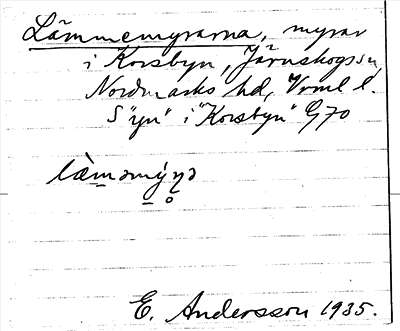 Lämmemyrarna, myrar
i Korsbyn, Järnskogs sn,
Nordmarks hd, Vrml l.
S "yn" i "Korsbyn" G70
E. Andersson 1935.